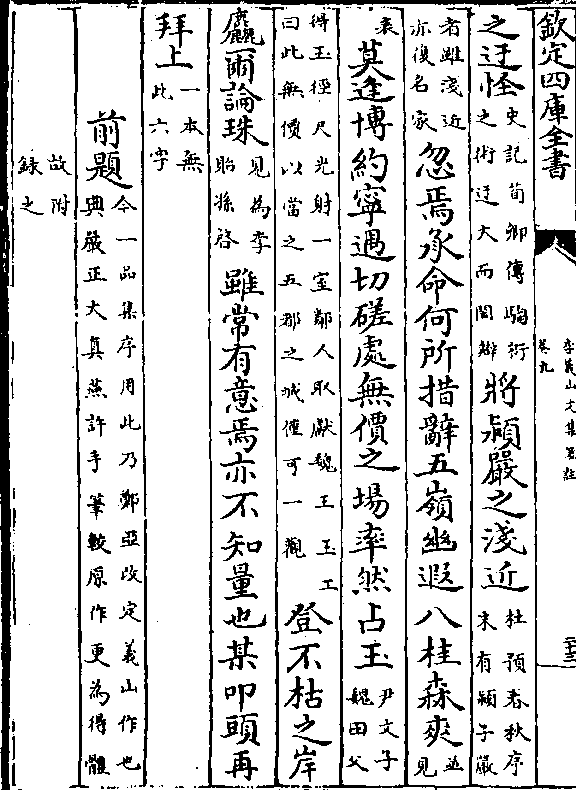 欽定四庫全書
李義山文集箋註
卷九
二十三
之迂怪史記荀卿傳騶衍之術迂大而閎辯將潁嚴之淺近杜預春秋序末有潁子嚴
者雖淺近亦復名家忽焉承命何所措辭五嶺幽遐八桂森爽並見
表莫逢博約寧遇切磋處無價之場率然占玉尹文子魏田父
得玉徑尺光射一室鄰人取獻魏王玉工曰此無價以當之五都之城僅可一觀登不枯之岸
麤爾論珠見為李貽孫啓雖常有意焉亦不知量也某叩頭再
拜上一本無此六字
前題今一品集序用此乃鄭亞改定義山作也典嚴正大真燕許手筆較原作更為得體
故附錄之